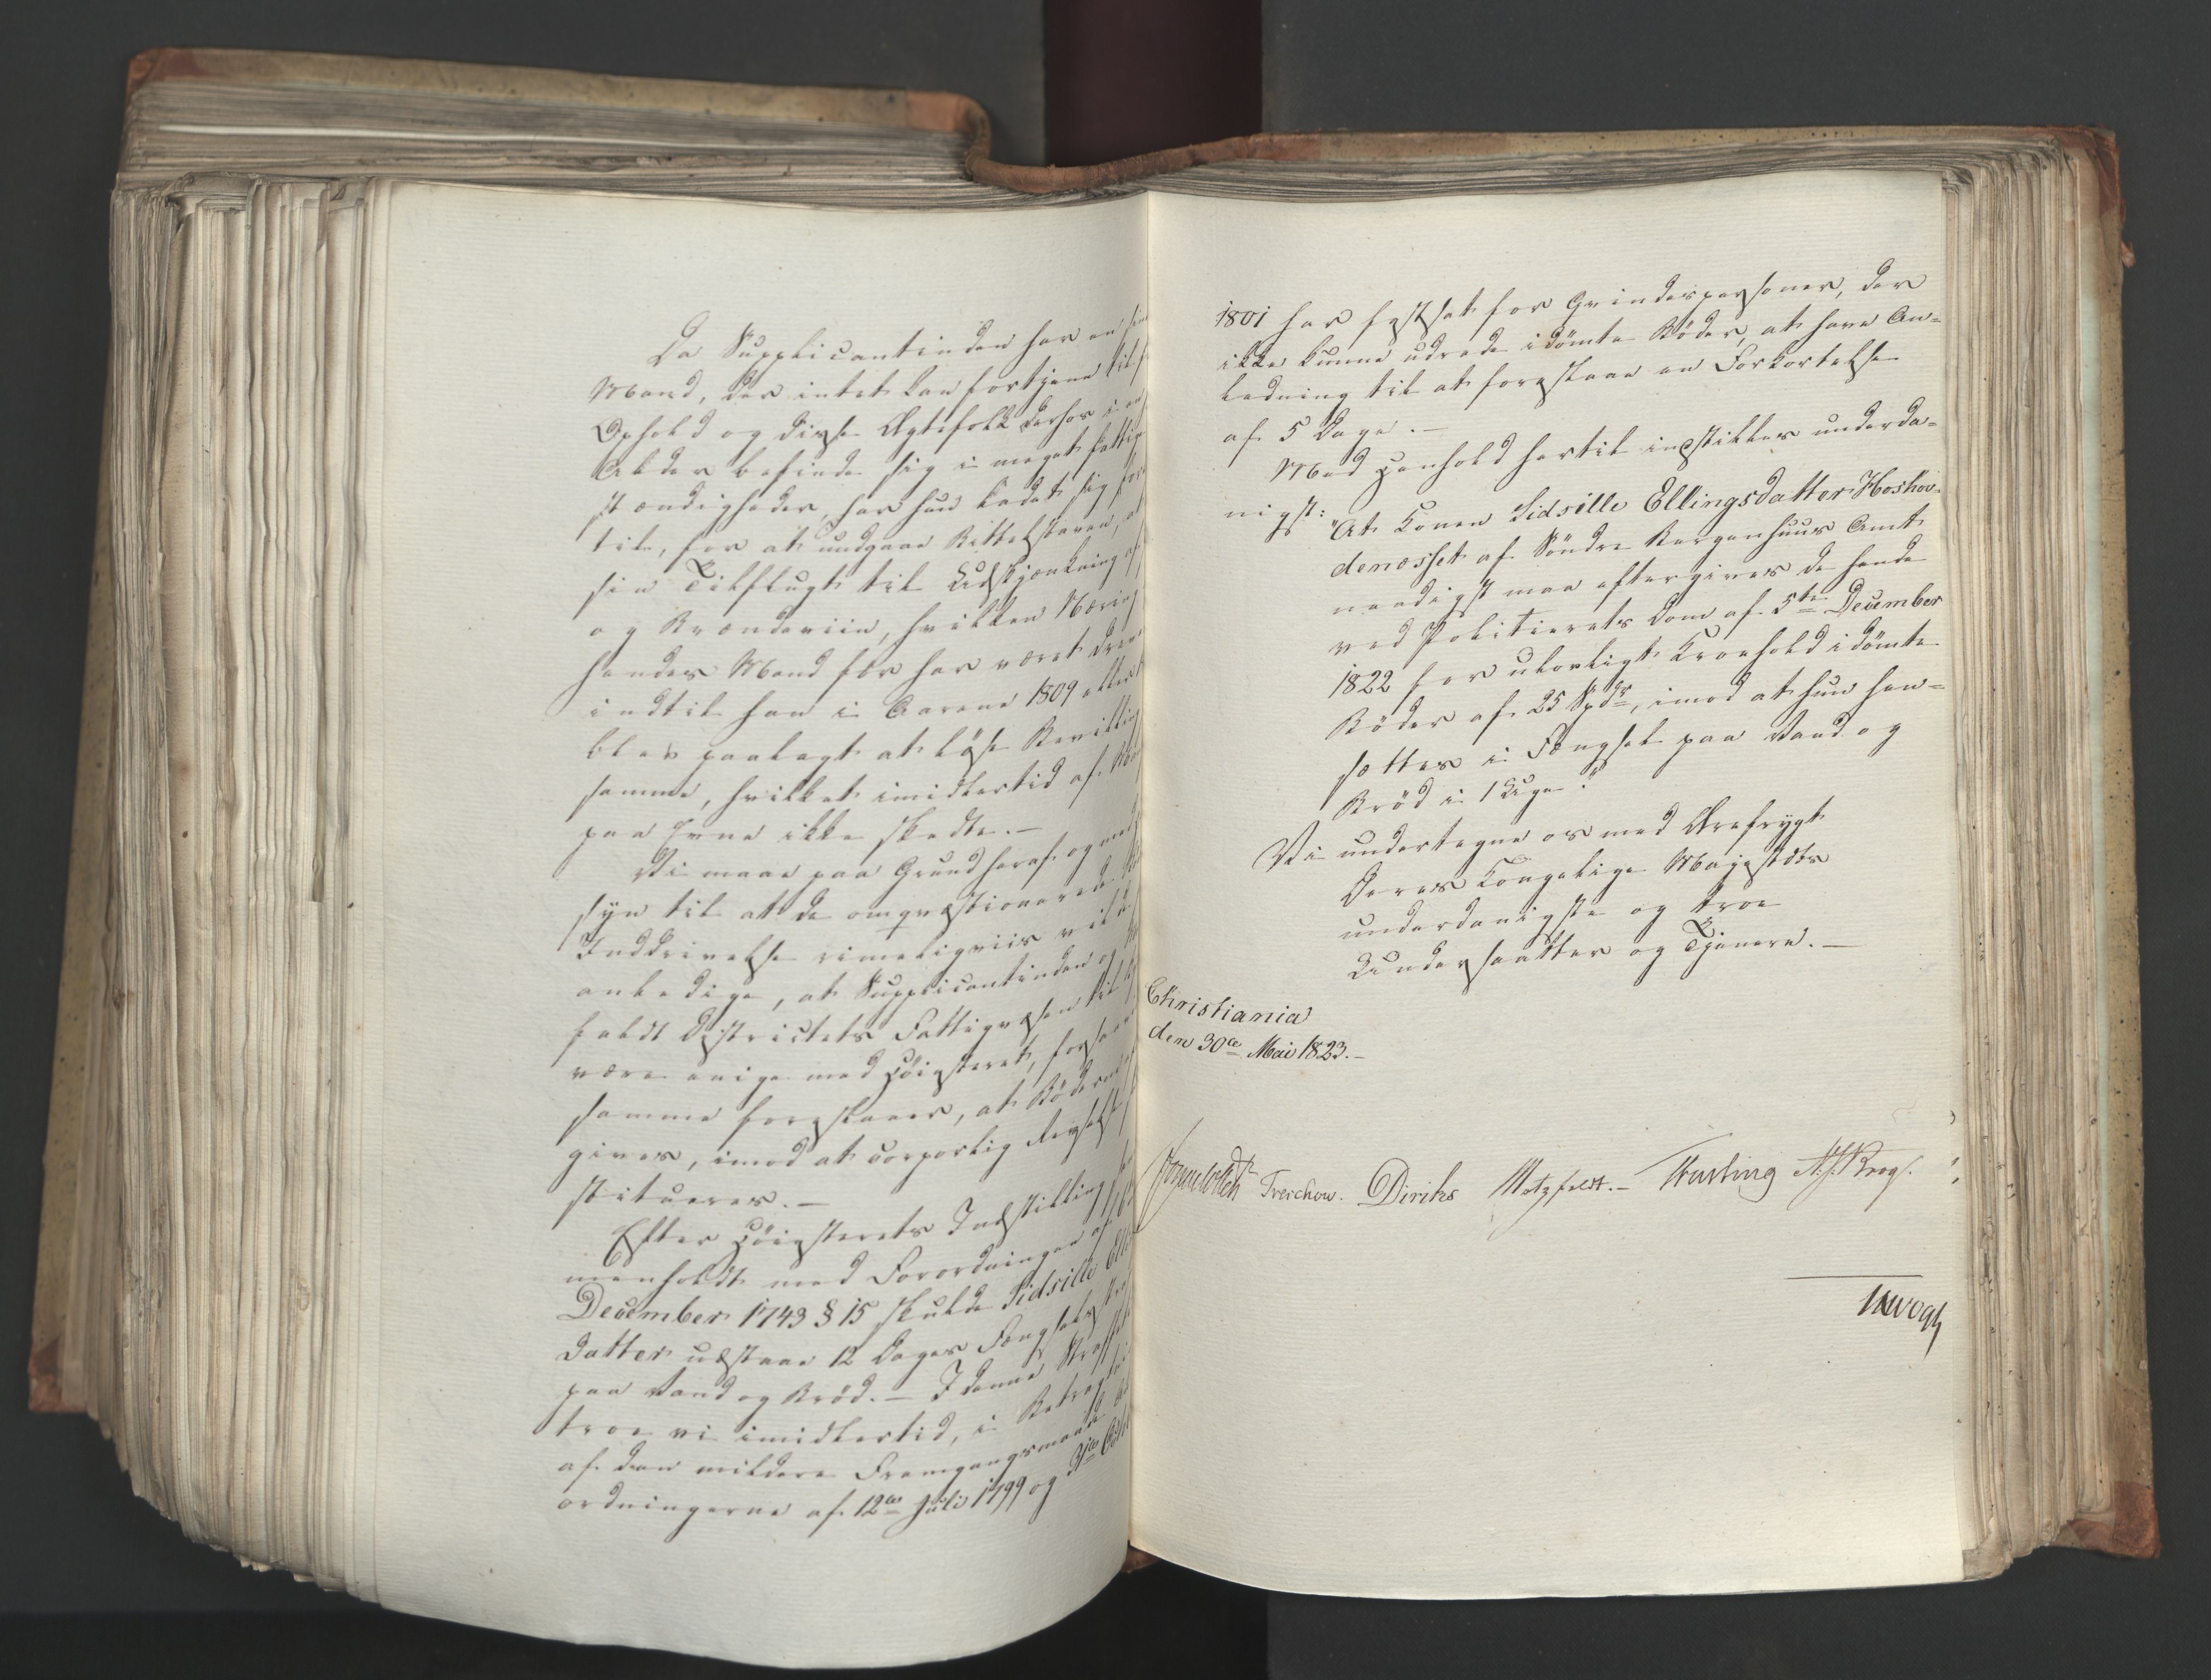 Da Supplicantinden har en
Mand, der intet kan fortjene til
Ophold og disse Ægtefolk derhos i en
Alder befinde sig i meget fattige
stændigheder, har hun ladet sig
til, for at undgaae Bettelstaven, at
sin Tilflugt til Udskjænkning af
og Brændeviin, hvilken Næring
hendes Mand før har været
indtil han i Aarene 1809 eller
blev paalagt at løse Bevilling
samme, hvilket imidlertid af
paa Evne ikke skedte.—
Vi maae paa Grund heraf og med
syn til at de omqvæstionerede
Inddrivelse rimeligviis vil
anledige, at Supplicantinden og
faldt Districtets Fattigvæsen til
være enige med Høisteret, forsaa
samme foreslaaer, at Bøderne
gives, imod at corporlig Revselse
stitueres.—
Efter Høiesterets Indstilling
menholdt med Forordningen af
December 1743 § 15 skulde Sidsille
datter udstaae 12 Dages Fængsels
paa Vand og Brød.— I denne
troe vi imidlertid, i Betragtning
af den mildere Fremgangsmaade
ordningerne af 12te Juli 1799 og
1801 har fastsat for Qvindespersoner, der
ikke kunne udrede idømte Bøder, at have An=
ledning til at foreslaae en Forkortelse
af 5 Dage.—
Med Henhold hertil indstilles underda=
nigst:
"At Konen Sidsille Ellingsdatter Hoshov=
denæsset af Søndre Bergenhuus Amt
naadigst maa eftergives de hende
ved Politierets Dom af 5te December
1822 for ulovligt Kroehold idømte
Bøder af 25 Spdr, imod at hun hen=
sættes i Fængsel paa Vand og
Brød i 1 Uge."
Vi undertegne os med Ærefrygt
Deres Kongelige Majestæts
underdanigste og troe
Undersaatter og Tjenere.—
Christiania
den 30te Mai 1823.—
Treschow. Diriks Motzfeldt.— A. J. Krog.